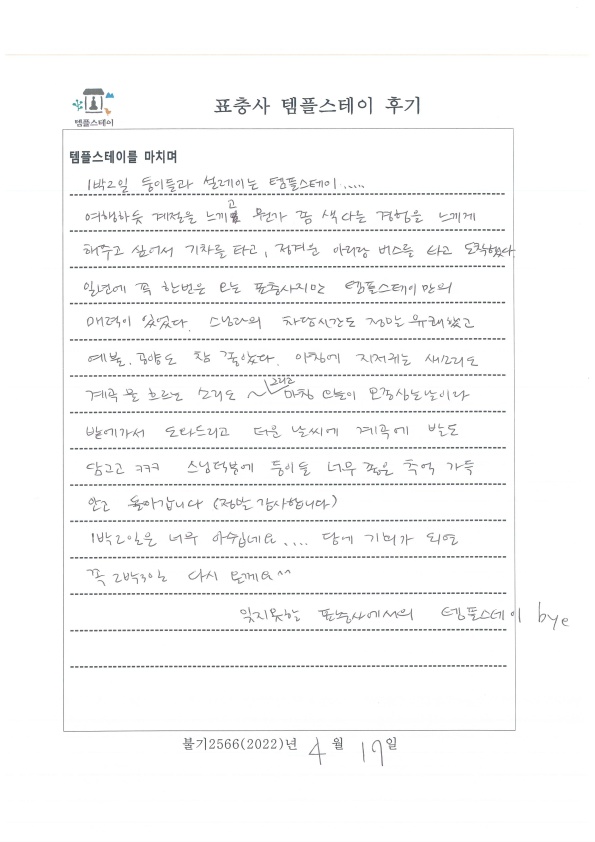 템플스테이
표충사 템플스테이 후기
템플스테이를 마치며
1박2일 둥이들과 설레이는 템플스테이.....
여행하듯 계절을 느끼고 뭔가 쫌 색다른 경험을 느끼게
해주고 싶어서 기차를 타고, 정겨운 아리랑 버스를 타고 도착했다.
일년에 꼭 한번은 오는 표충사지만 템플스테이만의
매력이 있었다. 스님과의 차담시간도 정말 유쾌했고
예불, 공양도 참 좋았다. 아침에 지저귀는 새소리도
계곡 물 흐르는 소리도 ~ 그리고 마침 오늘이 모종심는날이라
밭에가서 도와드리고 더운 날씨에 계곡에 발도
담그고 ㅋㅋㅋ 스님덕분에 둥이들 너무 좋은 추억 가득
안고 돌아갑니다 (정말 감사합니다)
1박2일은 너무 아쉽네요.... 담에 기회가 되면
꼭 2박3일 다시 올께요^^
잊지못할 표충사에서의 템플스테이 bye
불기2566(2022)년 4월 17일